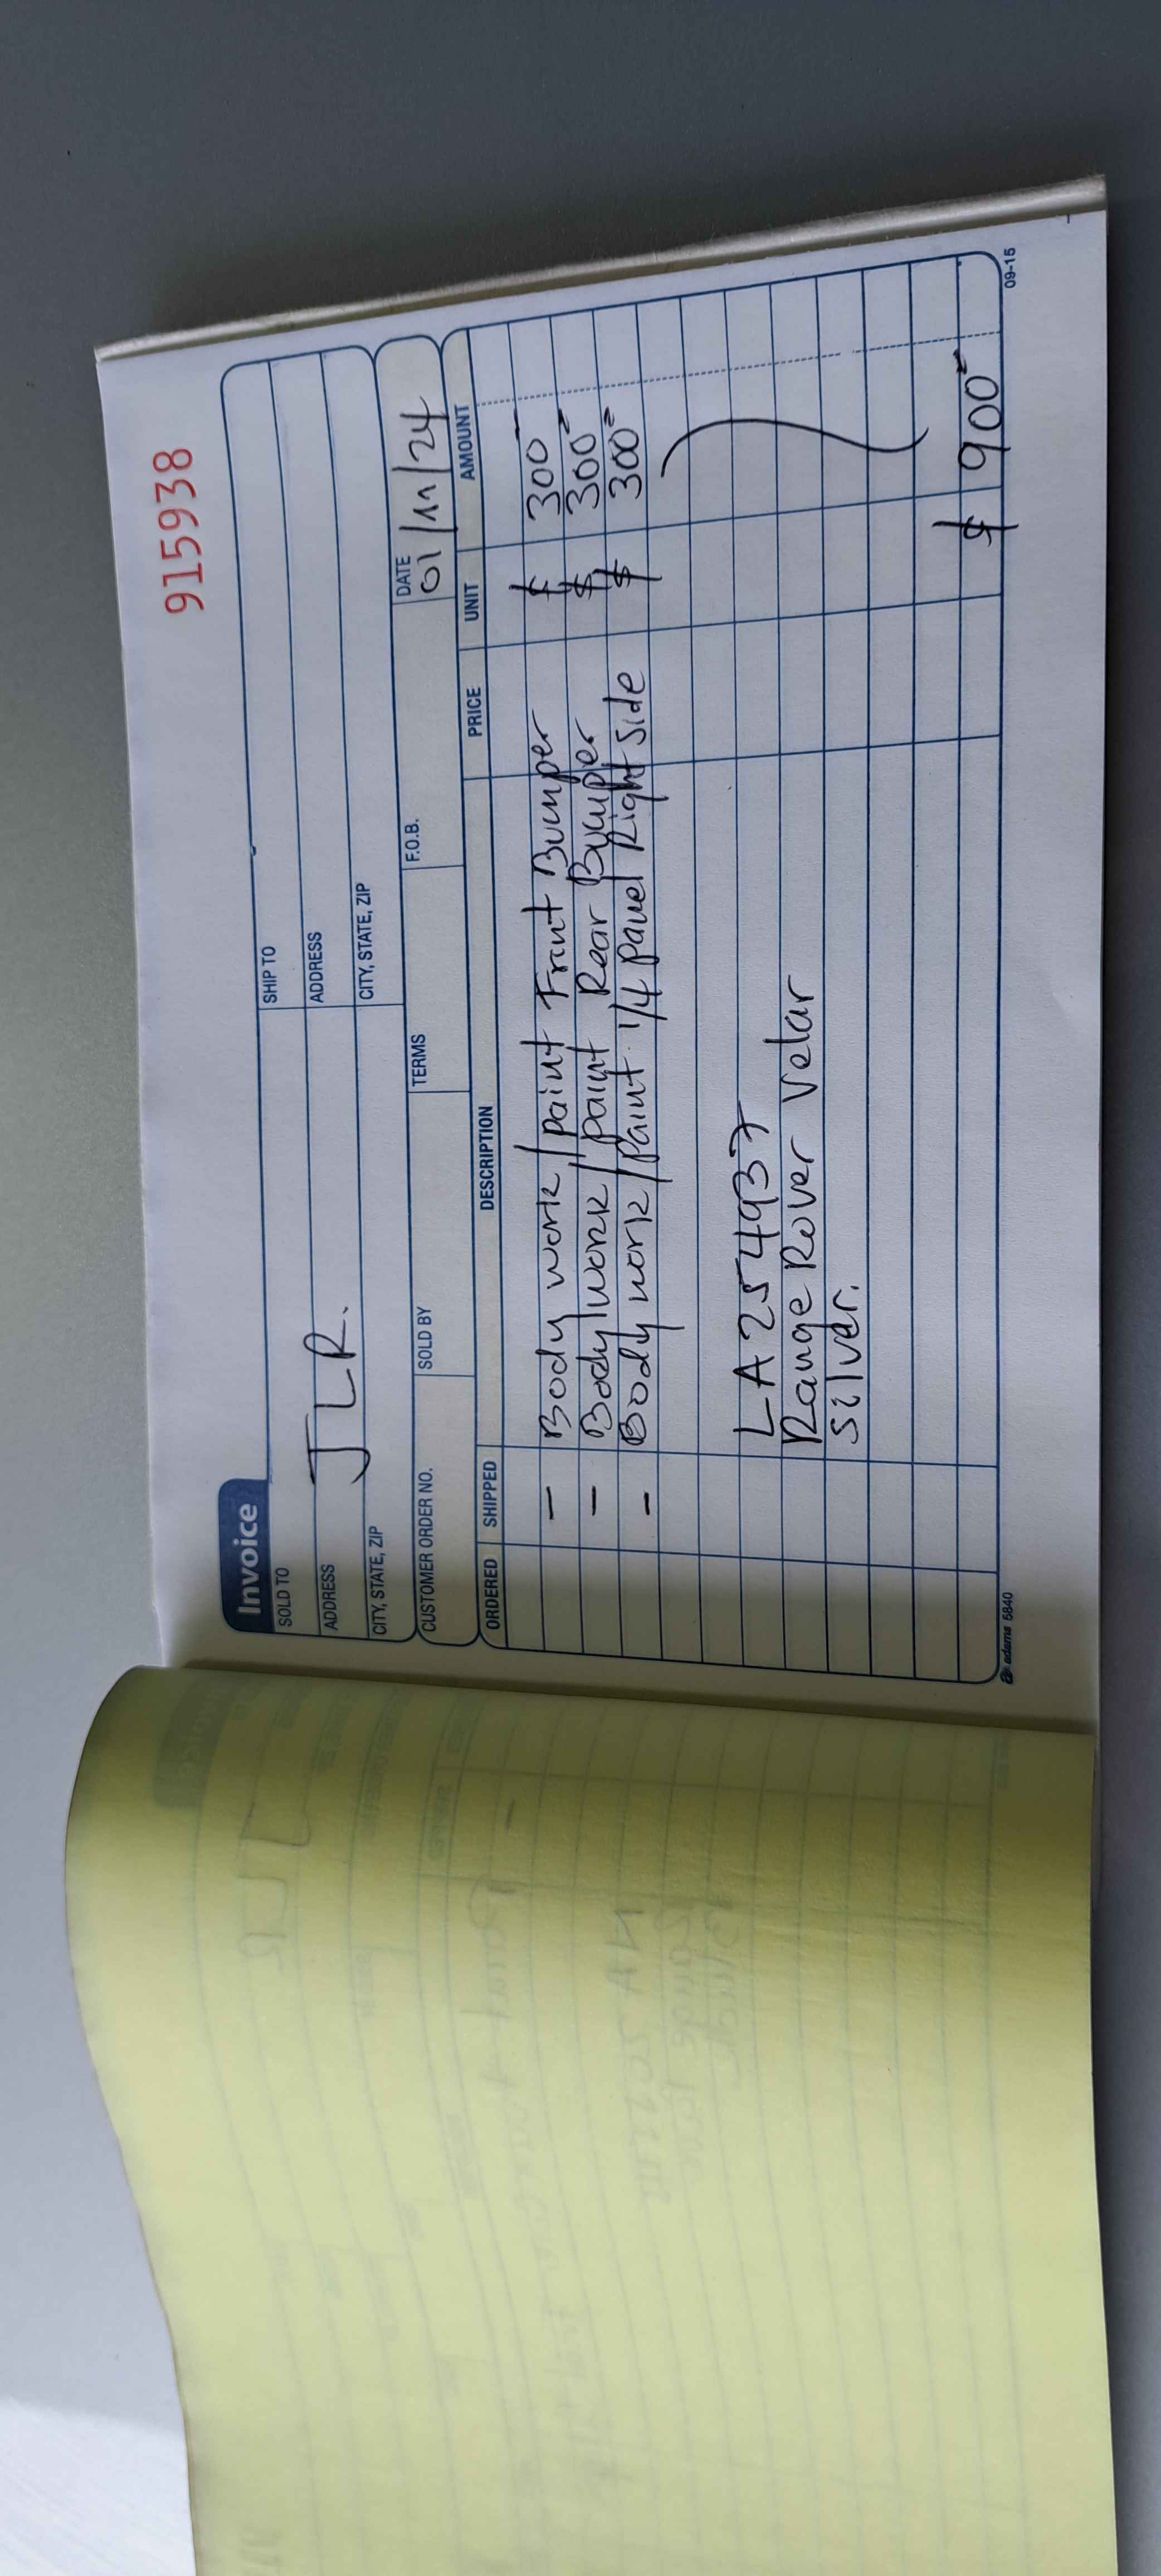 915938
Invoice
SOLD TO
SHIP TO
JLR.
ADDRESS
ADDRESS
CITY, STATE, ZIP
CITY, STATE, ZIP
CUSTOMER ORDER NO. SOLD BY TERMS F.O.B. DATE
01/11/24
ORDERED SHIPPED DESCRIPTION PRICE UNIT AMOUNT
- Body work/paint Front Bumper $ 300
- Body work/paint Rear Bumper $ 300
- Body work/paint 1/4 panel Right Side $ 300
LA254937
Range Rover Velar
silver.
$ 900
adams 5840
09-15